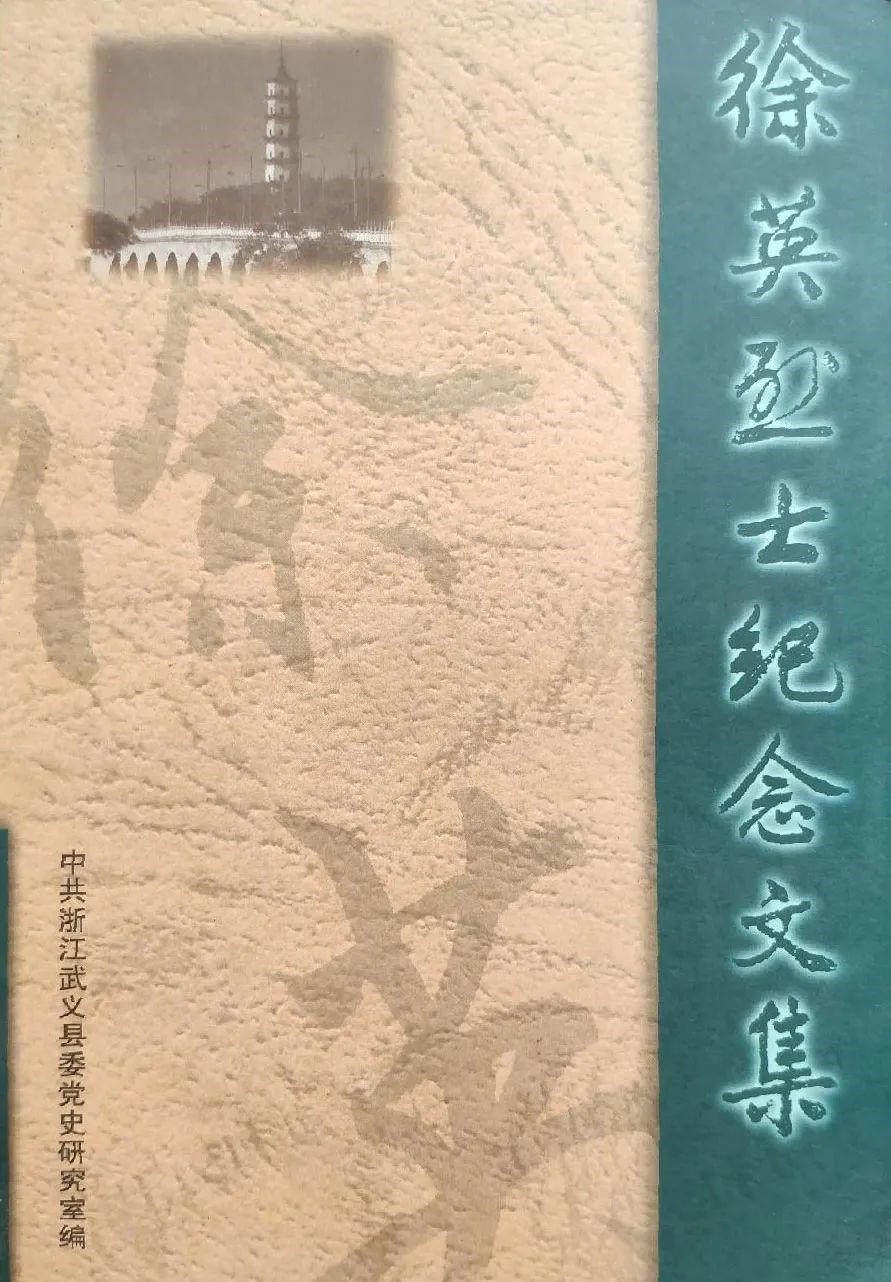 徐英烈士纪念文集
中共浙江武义县委党史研究室编
徐英